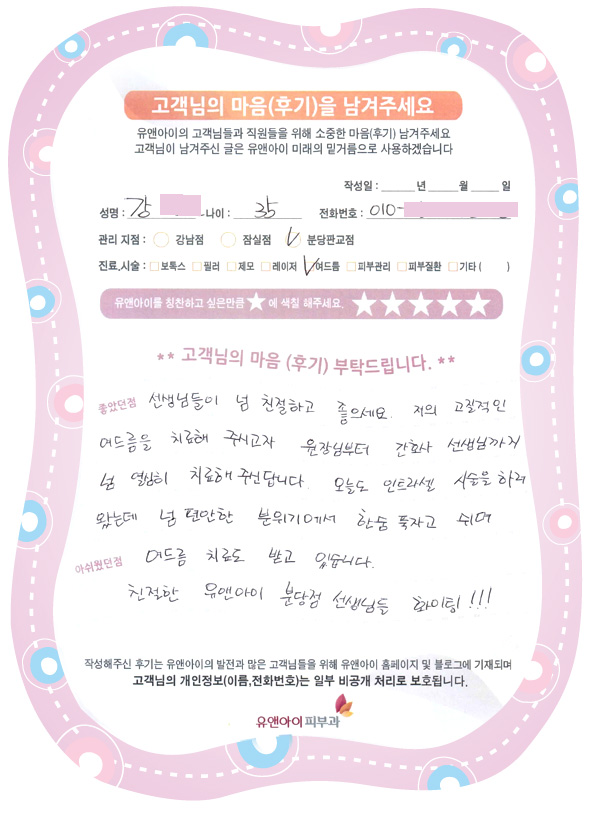 고객님의 마음(후기)을 남겨주세요
유앤아이의 고객님들과 직원들을 위해 소중한 마음(후기) 남겨주세요
고객님이 남겨주신 글은 유앤아이 미래의 밑거름으로 사용하겠습니다
작성일 : ______ 년 ______ 월 ______ 일
성명 : 강 나이 : 35 전화번호 : 010-
관리 지점 : 강남점 잠실점 분당판교점
진료,시술 : 보톡스 필러 제모 레이저 여드름 피부관리 피부질환 기타 ( )
유앤아이를 칭찬하고 싶은만큼 ★에 색칠 해주세요. ★★★★★
** 고객님의 마음 (후기) 부탁드립니다. **
좋았던점 선생님들이 넘 친절하고 좋으세요. 저의 고질적인
여드름을 치료해 주시고자 원장님부터 간호사 선생님까지
넘 열심히 치료해 주신답니다. 오늘도 인트라셀 시술을 하러
왔는데 넘 편안한 분위기에서 한숨 푹자고 쉬며
아쉬웠던점 여드름 치료도 받고 있습니다.
친절한 유앤아이 분당점 선생님들 화이팅!!!
작성해주신 후기는 유앤아이의 발전과 많은 고객님들을 위해 유앤아이 홈페이지 및 블로그에 기재되며
고객님의 개인정보(이름,전화번호)는 일부 비공개 처리로 보호됩니다.
유앤아이피부과